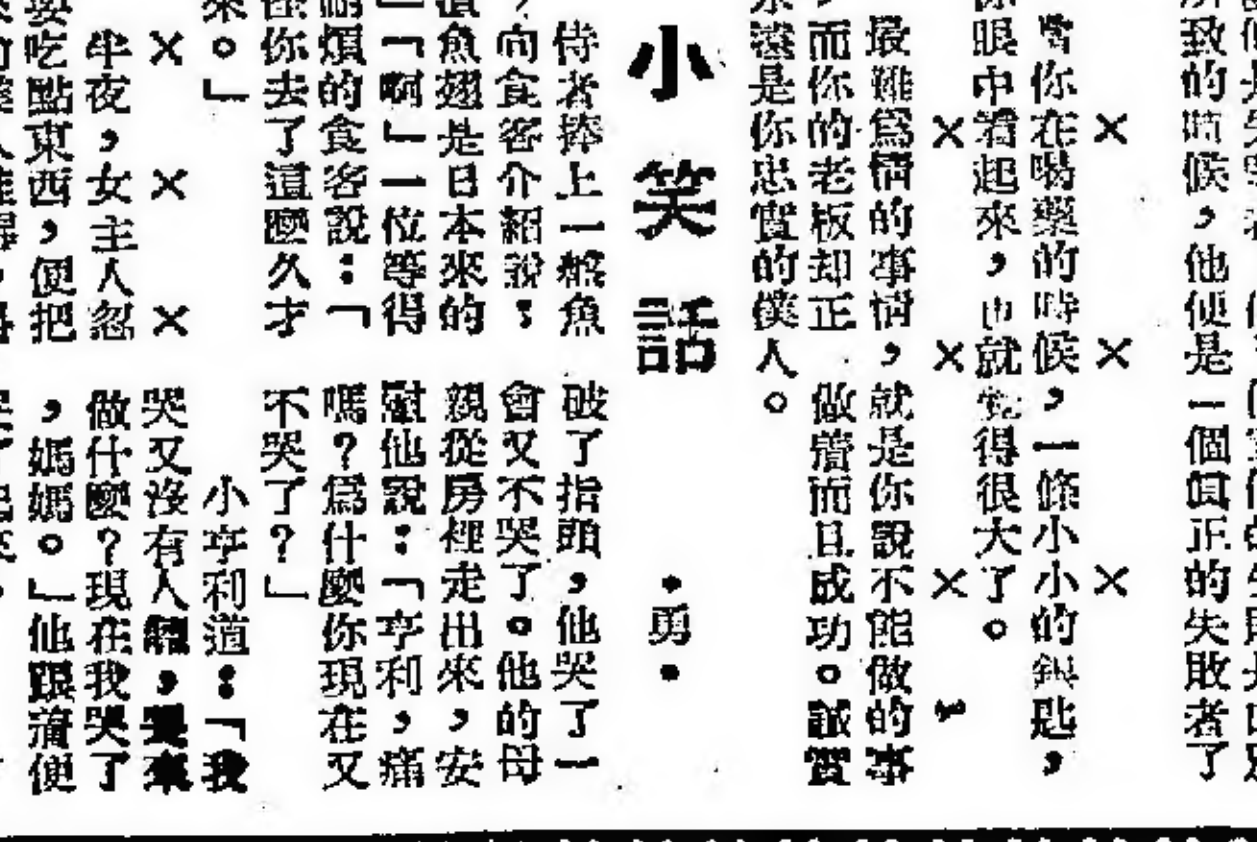 所致的時候，他便是一個眞正的失敗者了
×　×　×
當你在喝藥的時候，一條小小的銀匙，
你眼中看起來，也就覺得很大了。
×　×　×
最難爲情的事情，就是你說不能做的事
，而你的老板却正做着而且成功。誠實
永遠是你忠實的僕人。
小笑話
•勇•
侍者捧上一盤魚
，向食客介紹說：
魚翅是日本來的
」「啊」一位等得
耐煩的食客說：「
怪你去了這麼久才
來。」
×　×　×
半夜，女主人忽
要吃點東西，便把
破了指頭，他哭了一
會又不哭了。他的母
親從房裡走出來，安
慰他說：「亨利，痛
嗎？爲什麼你現在又
不哭了？」
小亨利道：「我
哭又沒有人聽，
做什麼？現在我哭了
，媽媽。」他跟着便